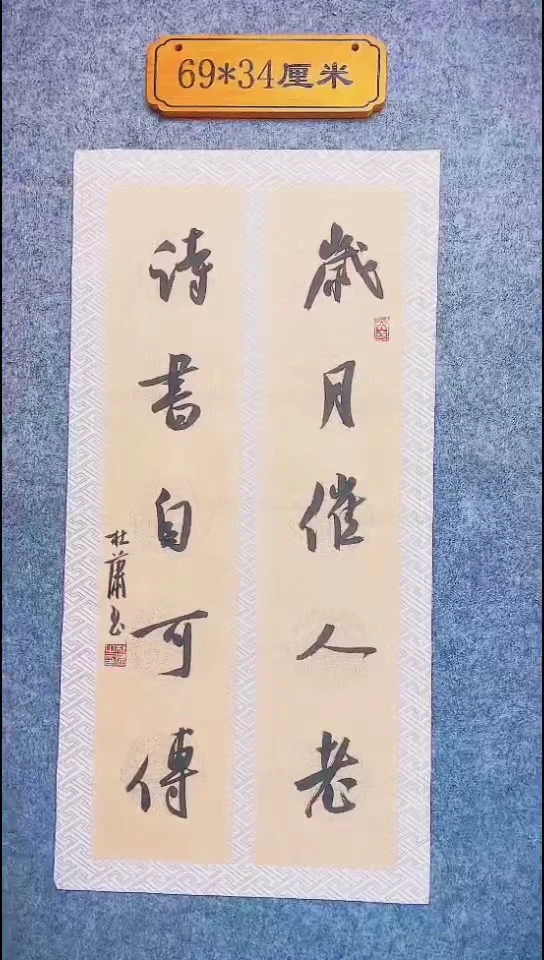 69*34厘米
歲月催人老
詩書自可傳
杜蕭书